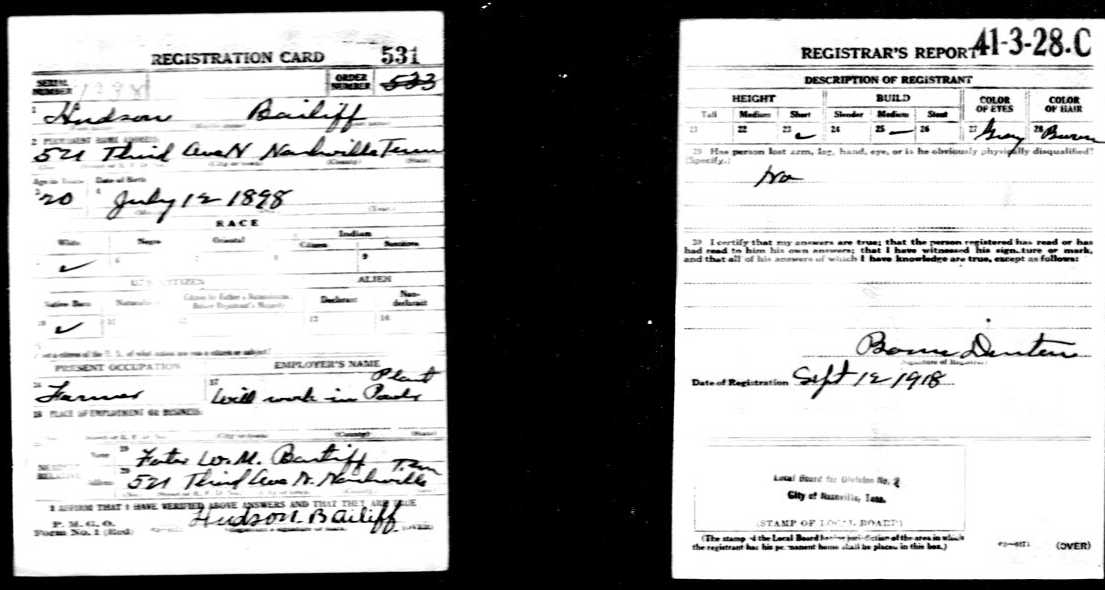 REGISTRATION CARD 531
SERIAL NUMBER 1298 ORDER NUMBER 533
1 Hudson Bailiff
2 PERMANENT HOME ADDRESS:
521 Third Ave N Nashville Tenn
(City or town) (County) (State)
Age in Years Date of Birth
3 20 4 July 12 1898
(Year)
RACE
White Negro Oriental Indian
Citizen
✓ 6 9
CITIZEN ALIEN
Native Born Citizen by Father's Naturalization Before Registrant's Majority Declarant Non-declarant
10 ✓ 11 12 13 14
PRESENT OCCUPATION EMPLOYER'S NAME
16 Farmer 17 Will work in Plant
18 PLACE OF EMPLOYMENT OR BUSINESS:
(City or town) (County) (State)
NEAREST RELATIVE Name 19 W.M. Bailiff
Address 20 521 Third Ave N. Nashville Tenn
I AFFIRM THAT I HAVE VERIFIED ABOVE ANSWERS AND THAT THEY ARE TRUE
P. M. G. O.
Form No. 1 (Red) Hudson Bailiff (OVER)
REGISTRAR'S REPORT 41-3-28.C
DESCRIPTION OF REGISTRANT
HEIGHT BUILD COLOR OF EYES COLOR OF HAIR
Tall Medium Short Slender Medium Stout
21 22 23 ✓ 24 25 — 26 27 Gray 28 Brown
29 Has person lost arm, leg, hand, eye, or is he obviously physically disqualified?
(Specify.)
No
30 I certify that my answers are true; that the person registered has read or has
had read to him his own answers; that I have witnessed his signature or mark,
and that all of his answers of which I have knowledge are true, except as follows:
(Signature of Registrar)
Date of Registration Sept 12 1918
Local Board for Division No. 2
City of Nashville, Tenn.
(STAMP OF LOCAL BOARD)
(The stamp of the Local Board having jurisdiction of the area in which
the registrant has his permanent home shall be placed in this box.) (OVER)